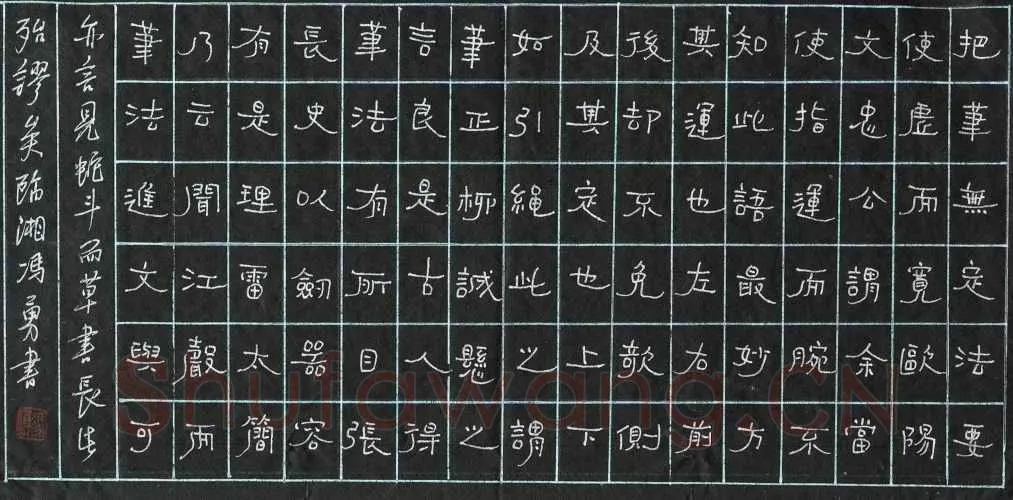 把筆無定法要
使虛而寬歐陽
文忠公謂余當
使指運而腕不
知此語最妙方
其運也左右前
後却不免欹側
及其定也上下
如引繩此之謂
筆正柳誠懸之
言良是古人得
筆法有所目張
長史以劒器容
有是理雷太簡
乃云聞江聲而
筆法進文與可
亦言見蛇斗而草書長此
殆謬矣臨湘馮勇書
Shufawang.CN